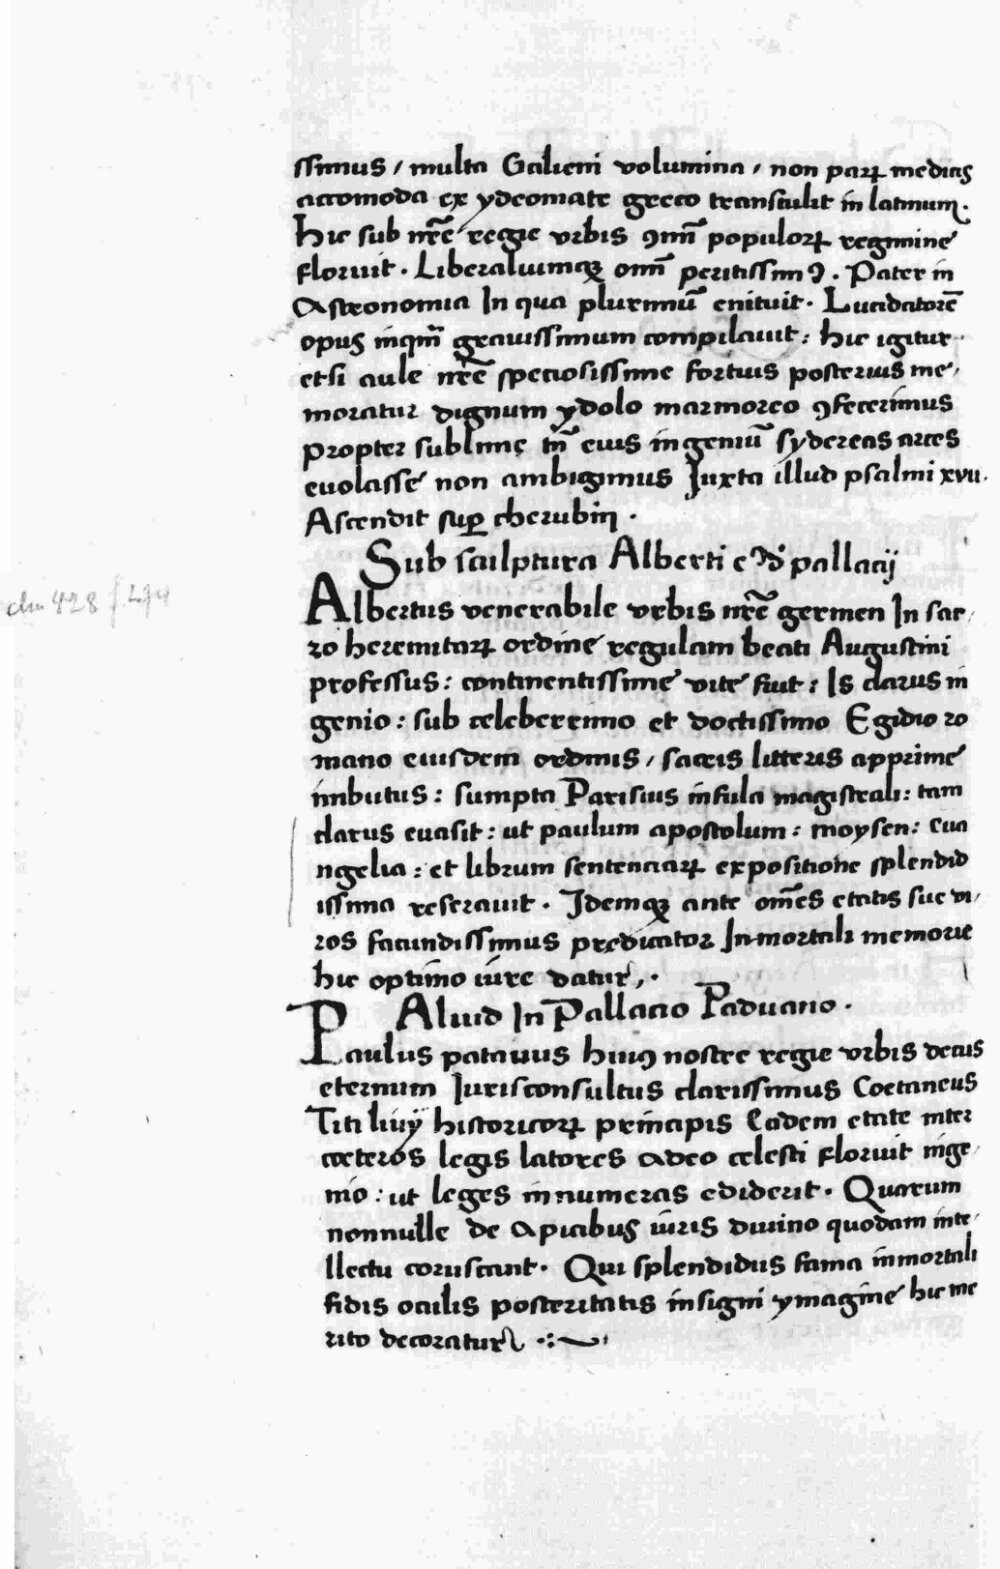 ssimus / multa Galieni volumina / non parꝝ medicꝭ
accomoda ex ydeomate greco transtulit in latinum.
Hic sub nr̄e regie vrbis ꝯmī populoꝝ regimine
floruit. Liberaliumqꝫ omī peritissimꝰ. Pater in
Astronomia In qua plurimū enituit. Lucidatorē
opus inqm̄ grauissimum compilauit: hic igitur
etsi aule nr̄e speciosissime fortuis posterius me,
moratur dignum ydolo marmoreo ꝯfecerimus
propter sublime tn̄ eius ingeniū sydereas arces
euolasse non ambigimus Iuxta illud psalmi xvii.
Ascendit sup̱ cherubin.
Sub sculptura Alberti e pallacij
Albertus venerabile vrbis nr̄e germen In sac,
ro heremitaꝝ ordine regulam beati Augustini
professus: continentissime vite fuit: Is clarus in
genio: sub celeberrimo et doctissimo Egidio ro
mano eiusdem ordinis / sacris litteris apprime
inbutus: sumpta Parisius infula magistrali: tam
clarus euasit: ut paulum apostolum: moysen: eua
ngelia: et librum sentenciaꝝ expositione splendid
issima reserauit. Idemqꝫ ante om̄es etatis sue vi,
ros facundissimus predicator Inmortali memorie
hic optimo iure datur,.
Aliud In Pallacio Paduano.
Paulus patauus huiꝰ nostre regie vrbis decus
eternum Iurisconsultus clarissimus Coetaneus
Titi liuij historicoꝝ principis Eadem etate inter
coeteros legis latores adeo celesti floruit inge
nio: ut leges innumeras ediderit. Quarum
nonnulle de apicibus iuris diuino quodam inte,
llectu coruscant. Qui splendidus fama inmortali
fidis oculis posteritatis insigni ymagine hic me
rito decoratur
clm 428 f.